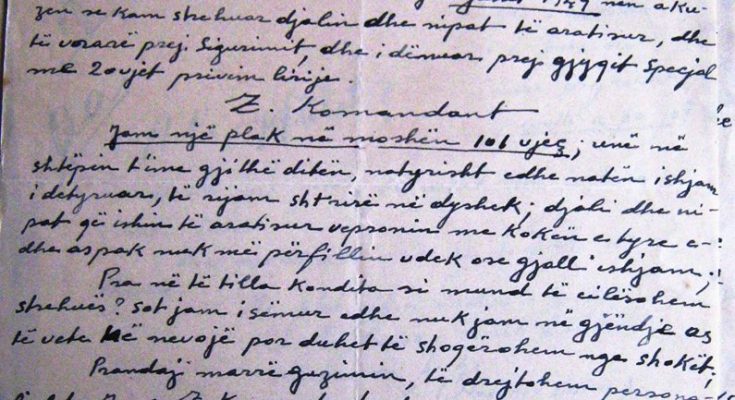 1949 nën aku-
zën se kam strehuar djalin dhe nipat të aratisur, dhe
të vrarë prej Sigurimit, dhe i dënuar prej gjyqit special
me 20 vjet privim lirije.
Z. Komandant
Jam një plak në moshën 101 vjeç; unë në
shtëpin t'ime gjithë ditën, natyrisht edhe natën ishjam
i detyruar, të rijam shtrirë në dyshek; djali dhe ni-
pat që ishin të aratisur vepronin me kokën e tyre e
dhe aspak nuk më përfillin vdek ose gjall ishjam;
Pra në të tilla kondita si mund të cilësohem
strehues? sot jam i sëmur edhe nuk jam në gjëndje as
të vete në nevojë por duhet të shoqërohem nga shokët;
Prandaj marrë guzimin, të drejtohem persona-
Z.